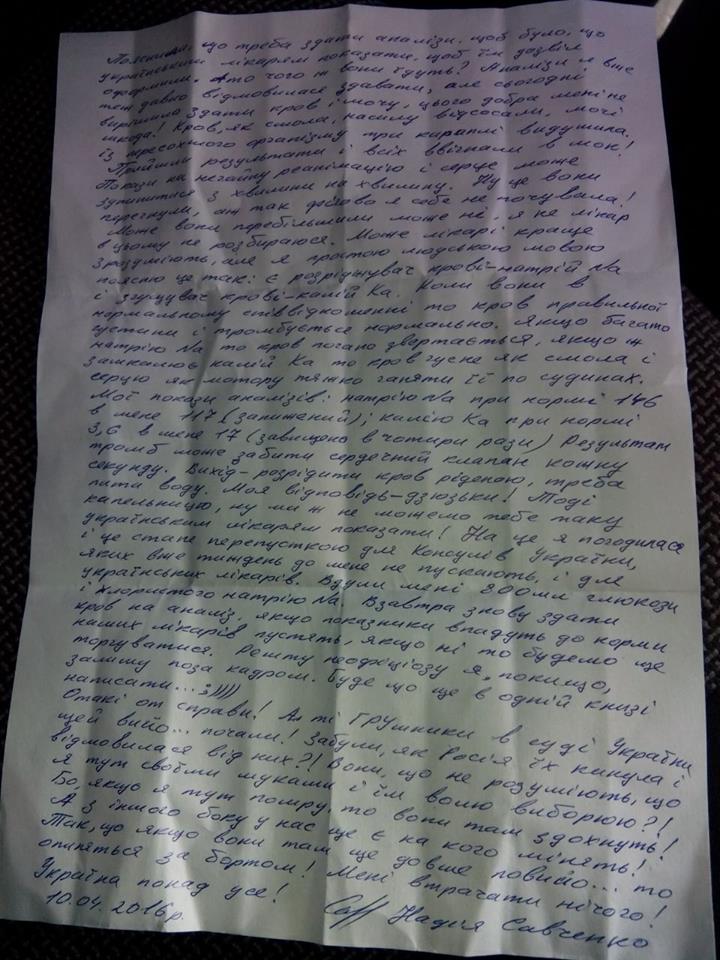 Пояснили, що треба здати аналізи, щоб було, що
українським лікарям показати, щоб їм дозвіл
оформили. Ато чого ж вони їдуть? Аналізи я вже
теж давно відмовилася здавати, але сьогодні
вирішила здати кров і мочу, цього добра мені не
шкода! Кров, як смола, насилу відсосали, мочі
із пресохшого організму три краплі видушила.
Прийшли результати і всіх ввігнали в шок!
Покази на негайну реанімацію і серце може
зупинитися з хвилини на хвилину. Ну це вони
перегнули, аж так фігово я себе не почувала!
Може вони перебільшили може ні, я не лікар
в цьому не розбираюся. Може лікарі краще
зрозуміють, але я простою людською мовою
поясню це так: є розріджувач крові-натрій Na
і згущувач крові-калій Ka. Коли вони в
нормальному співвідношенні то кров правильної
густини і тромбується нормально. Якщо багато
натрію Na то кров погано звертається, якщо ж
зашкалює калій Ka то кров гусне як смола і
серцю як мотору тяжко ганяти її по судинах.
Мої покази аналізів: натрію Na при нормі 146
в мене 117 (занижений); калію Ka при нормі
3,6 в мене 17 (завищено в чотири рази) Результат
тромб може забити сердечний клапан кожну
секунду. Вихід-розрідити кров рідиною, треба
пити воду. Моя відповідь-дзюзьки! Тоді
капельницю, ну ми ж не можемо тебе таку
українським лікарям показати! На це я погодилася
і це стане перепусткою для Консулів України,
яких вже тиждень до мене не пускають, і для
українських лікарів. Вдули мені 800мл глюкози
і хлористого натрію Na. Взавтра знову здати
кров на аналіз, якщо показники впадуть до норми
наших лікарів пустять, якщо ні то будемо ще
торгуватися. Решту неофіціозу я, покищо,
залишу поза кадром. Буде що ще в одній книзі
написати... ;)))))
Отакі от справи! А ті ГРУшники в суді України
щей вийо... почали! Забули, як Росія їх кинула і
відмовилася від них?! Вони, що не розуміють, що
я тут своїми муками і їм волю виборюю?!
Бо, якщо я тут помру, то вони там здохнуть!
А з іншого боку у нас ще є на кого мінять!
Так, що якщо вони там ще довше повийо... то
опиняться за бортом! Мені втрачати нічого!
Україна понад усе!
10.04.2016р. Надія Савченко